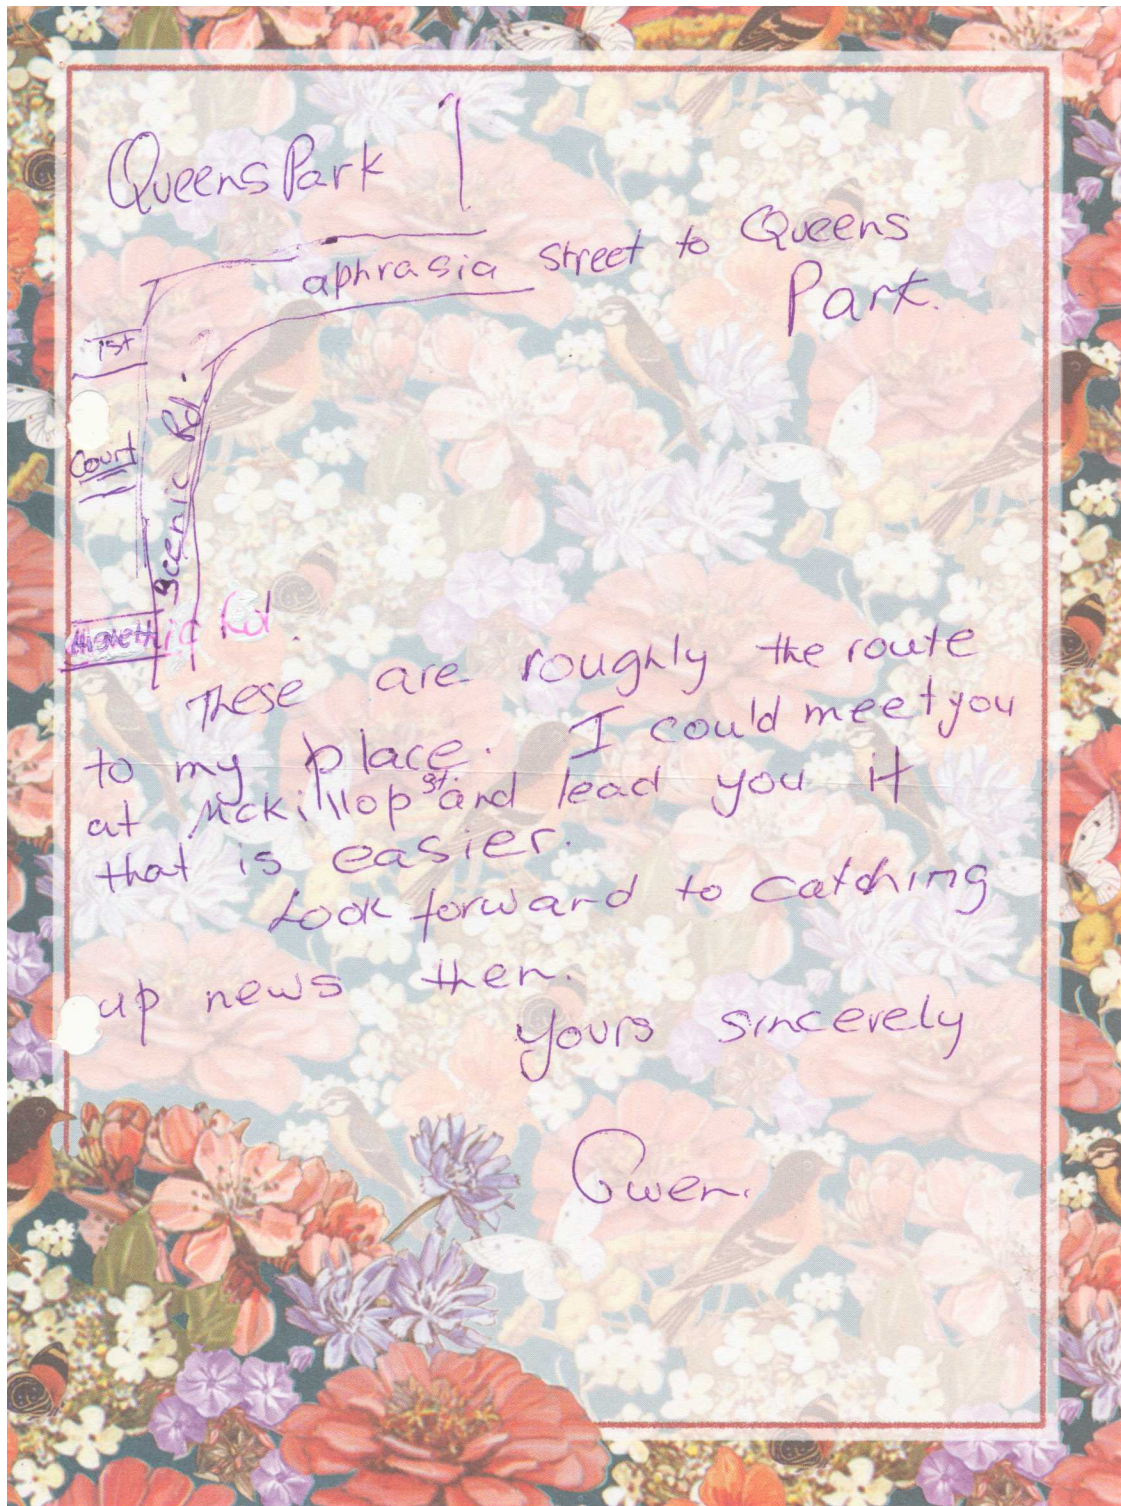 Queens Park
aphrasia street to Queens
Park.
1st
Court
Scenic Rd.
ic Rd.
These are roughly the route
to my place. I could meet you
at Mckillop st. and lead you if
that is easier.
Look forward to catching
up news then.
Yours sincerely
Gwen.